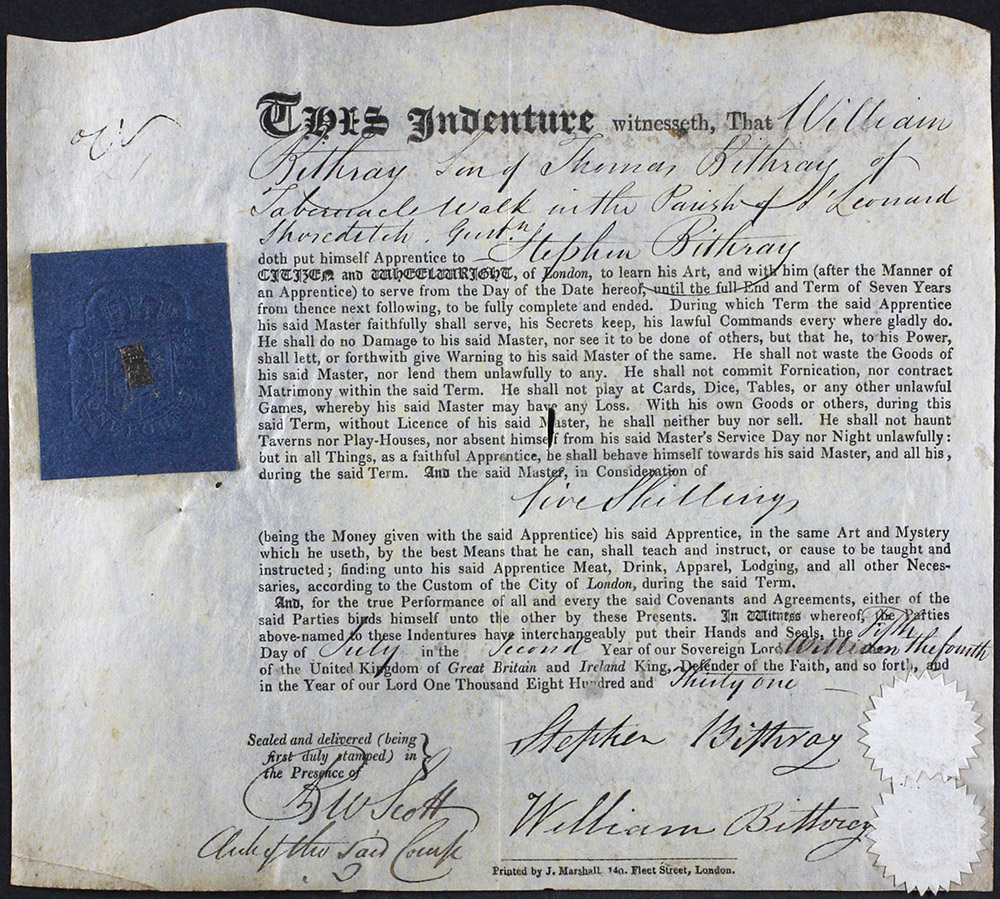 THIS Indenture witnesseth, That William
Bithray Son of Thomas Bithray of
Tabernacle Walk in the Parish of St Leonard
Shoreditch. Gentn
doth put himself Apprentice to Stephen Bithray
CITIZEN and WHEELWRIGHT, of London, to learn his Art, and with him (after the Manner of
an Apprentice) to serve from the Day of the Date hereof, until the full End and Term of Seven Years
from thence next following, to be fully complete and ended. During which Term the said Apprentice
his said Master faithfully shall serve, his Secrets keep, his lawful Commands every where gladly do.
He shall do no Damage to his said Master, nor see it to be done of others, but that he, to his Power,
shall lett, or forthwith give Warning to his said Master of the same. He shall not waste the Goods of
his said Master, nor lend them unlawfully to any. He shall not commit Fornication, nor contract
Matrimony within the said Term. He shall not play at Cards, Dice, Tables, or any other unlawful
Games, whereby his said Master may have any Loss. With his own Goods or others, during this
said Term, without Licence of his said Master, he shall neither buy nor sell. He shall not haunt
Taverns nor Play-Houses, nor absent himself from his said Master's Service Day nor Night unlawfully:
but in all Things, as a faithful Apprentice, he shall behave himself towards his said Master, and all his,
during the said Term. And the said Master, in Consideration of
five Shillings
(being the Money given with the said Apprentice) his said Apprentice, in the same Art and Mystery
which he useth, by the best Means that he can, shall teach and instruct, or cause to be taught and
instructed; finding unto his said Apprentice Meat, Drink, Apparel, Lodging, and all other Neces-
saries, according to the Custom of the City of London, during the said Term.
And, for the true Performance of all and every the said Covenants and Agreements, either of the
said Parties binds himself unto the other by these Presents. In Witness whereof, the Parties
above-named to these Indentures have interchangeably put their Hands and Seals, the Fifth
Day of July in the Second Year of our Sovereign Lord William the fourth
of the United Kingdom of Great Britain and Ireland King, Defender of the Faith, and so forth, and
in the Year of our Lord One Thousand Eight Hundred and Thirty one
Stephen Bithray
Sealed and delivered (being
first duly stamped) in
the Presence of
Scott
Clerk of the said Comp
William Bithray
Printed by J. Marshall, 140, Fleet Street, London.